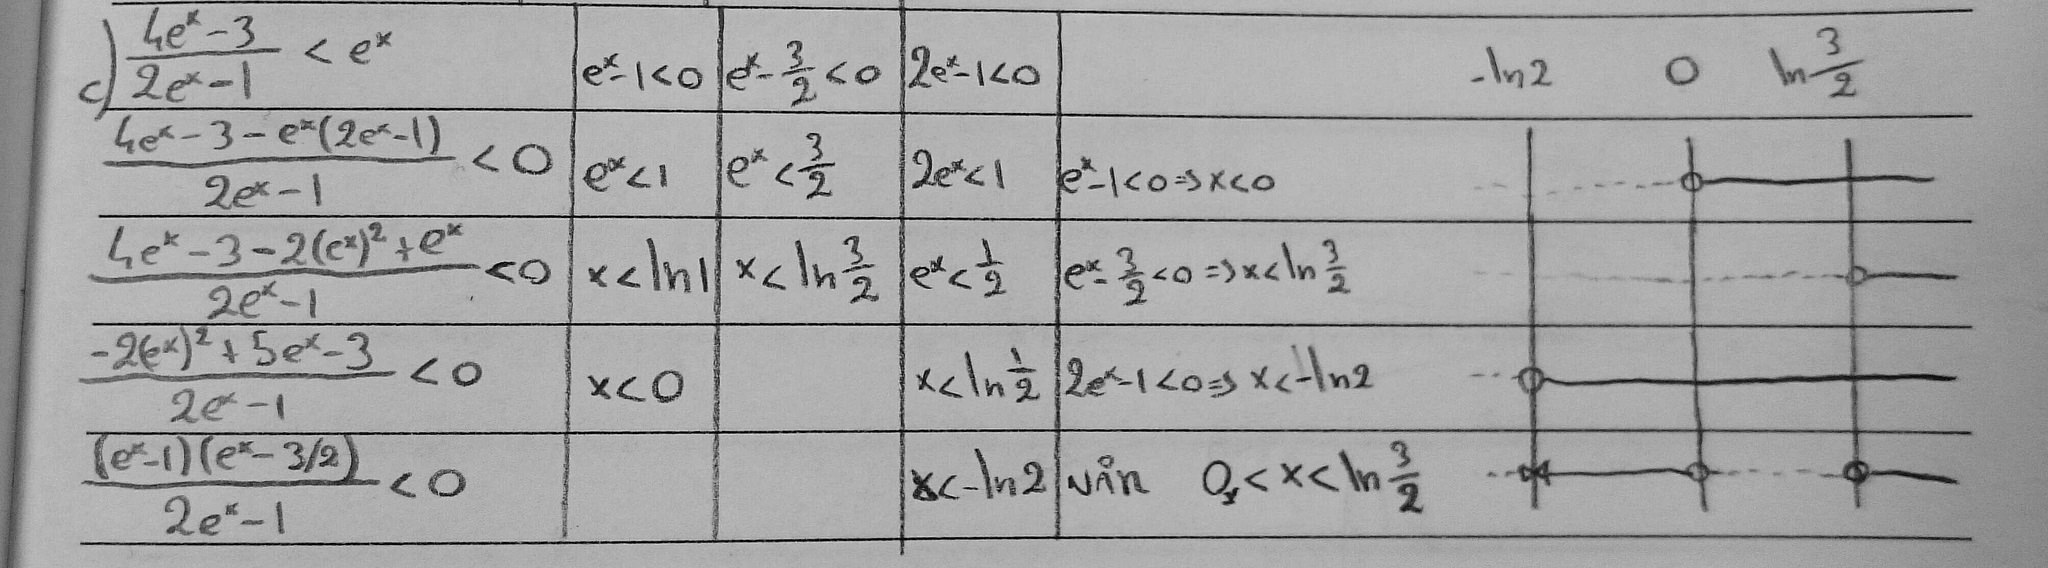 c) (4eˣ-3)/(2eˣ-1) < eˣ | eˣ-1<0 | eˣ-3/2<0 | 2eˣ-1<0 | -ln2 0 ln 3/2
(4eˣ-3-eˣ(2eˣ-1))/(2eˣ-1) <0 | eˣ<1 | eˣ<3/2 | 2eˣ<1 | eˣ-1<0⇒x<0
(4eˣ-3-2(eˣ)²+eˣ)/(2eˣ-1) <0 | x<ln1 | x<ln 3/2 | eˣ<1/2 | eˣ-3/2<0⇒x<ln 3/2
(-2(eˣ)²+5eˣ-3)/(2eˣ-1) <0 | x<0 | x<ln 1/2 | 2eˣ-1<0⇒x<-ln2
((eˣ-1)(eˣ-3/2))/(2eˣ-1) <0 | x<-ln2 | 0<x<ln 3/2